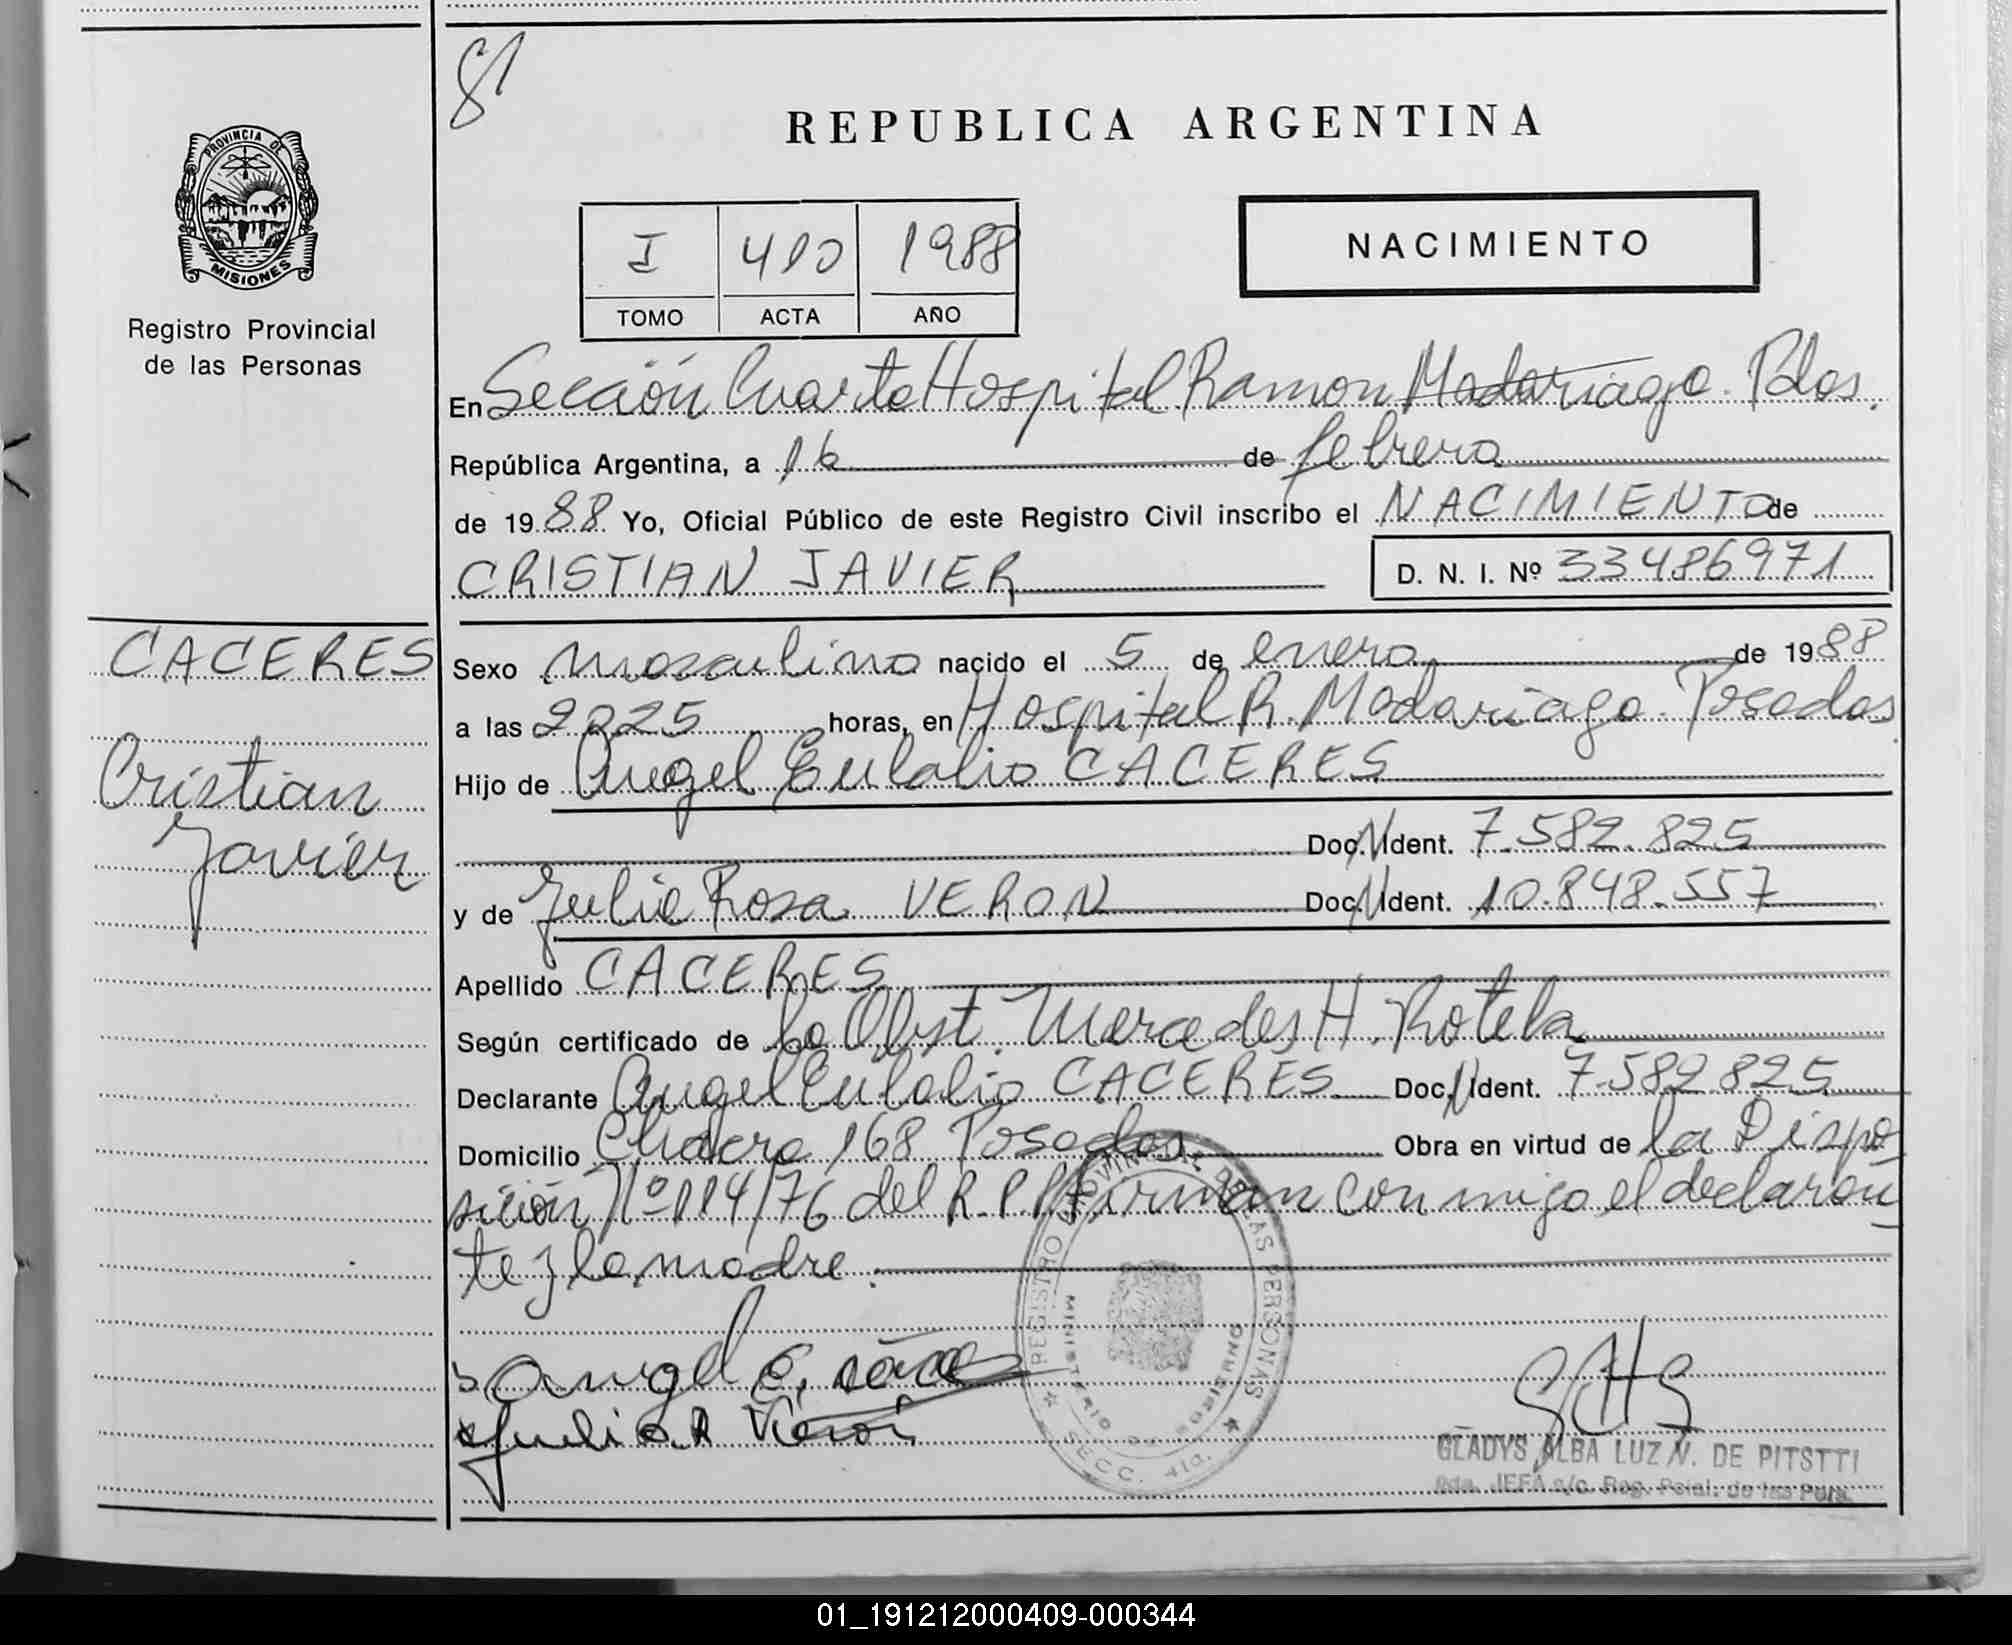 81
REPUBLICA ARGENTINA
PROVINCIA DE
MISIONES
Registro Provincial
de las Personas
I 410 1988
TOMO ACTA AÑO
NACIMIENTO
En Sección Cuarta Hospital Ramon Madariaga. Pdas.
República Argentina, a 16 de febrero
de 1988 Yo, Oficial Público de este Registro Civil inscribo el NACIMIENTO de
CRISTIAN JAVIER D. N. I. Nº 33486971
CACERES
Cristian
Javier
Sexo masculino nacido el 5 de enero de 1988
a las 2025 horas, en Hospital R. Madariaga. Posadas
Hijo de Angel Eulalio CACERES
Doc. N Ident. 7.582.825
y de Julia Rosa VERON Doc. N Ident. 10.848.557
Apellido CACERES
Según certificado de la Obst. Mercedes H. Rotela
Declarante Angel Eulalio CACERES Doc. N Ident. 7.582.825
Domicilio Chacra 168 Posadas Obra en virtud de la Dispo
sición Nº 114/76 del R.P.P. firman conmigo el declaran
te y la madre.
Angel E. caceres
Julia R Veron
REGISTRO PROVINCIAL DE LAS PERSONAS
MINISTERIO DE GOBIERNO
SECC. 4ta.
GLADYS ALBA LUZ N. DE PITSTTI
JEFA a/c. Reg. Pcial. de las Pers.
01_191212000409-000344